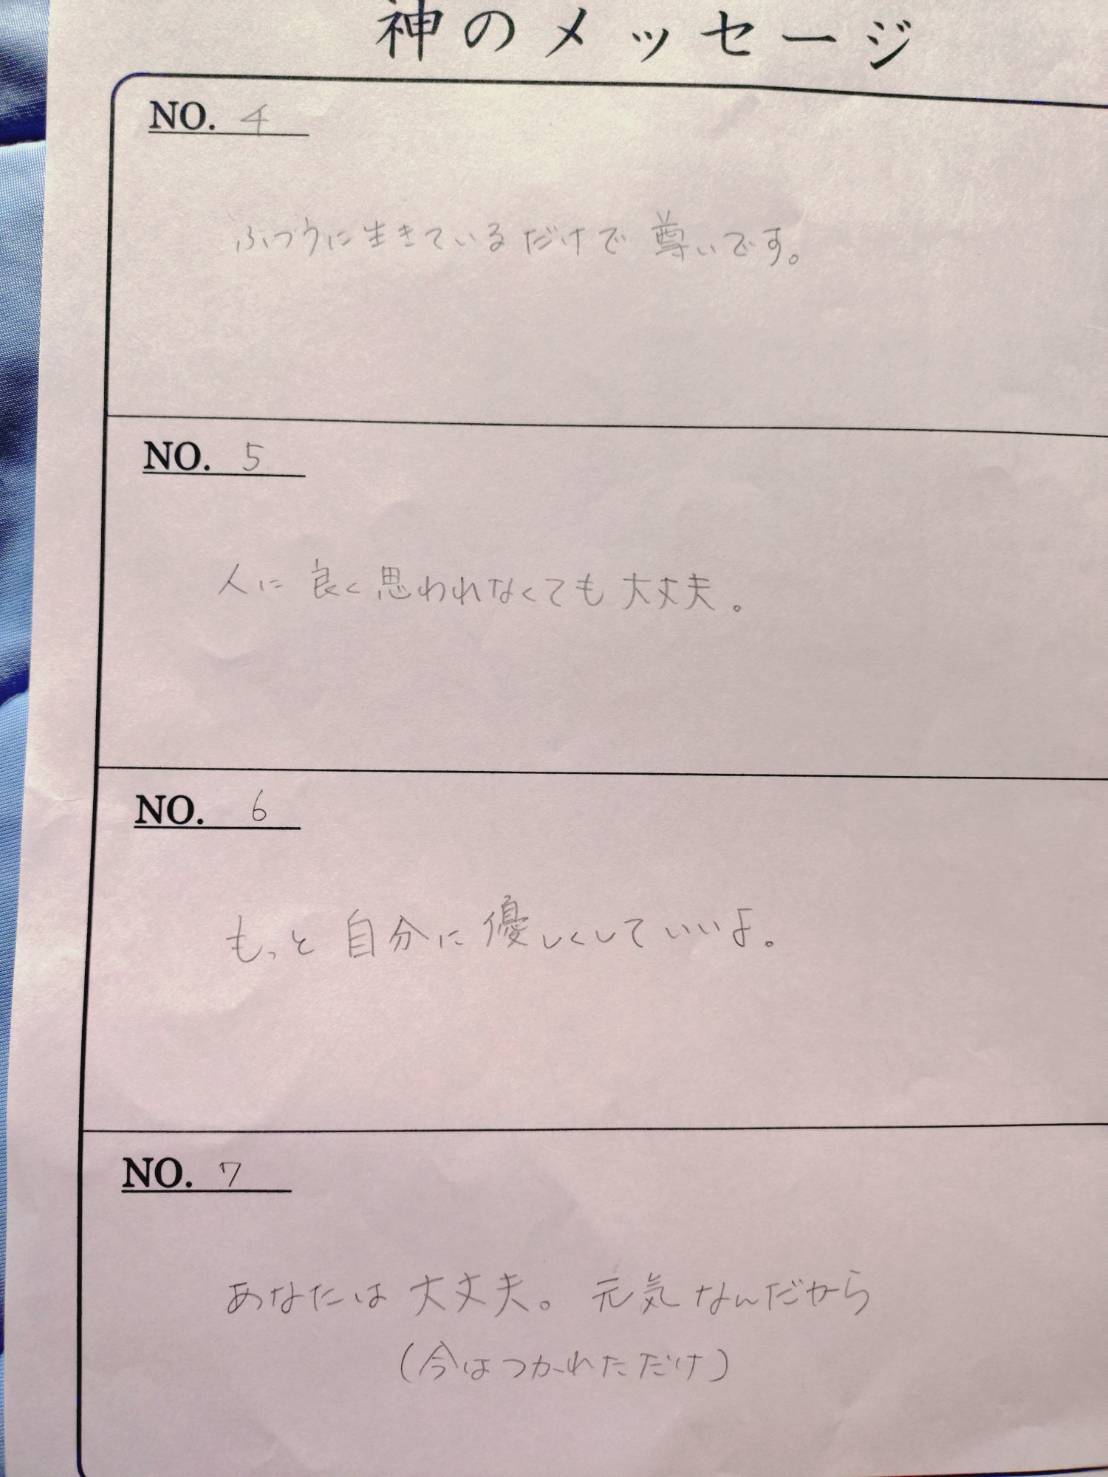 神のメッセージ
NO. 4
ふつうに生きているだけで尊いです。
NO. 5
人に良く思われなくても大丈夫。
NO. 6
もっと自分に優しくしていいよ。
NO. 7
あなたは大丈夫。元気なんだから
(今はつかれただけ)